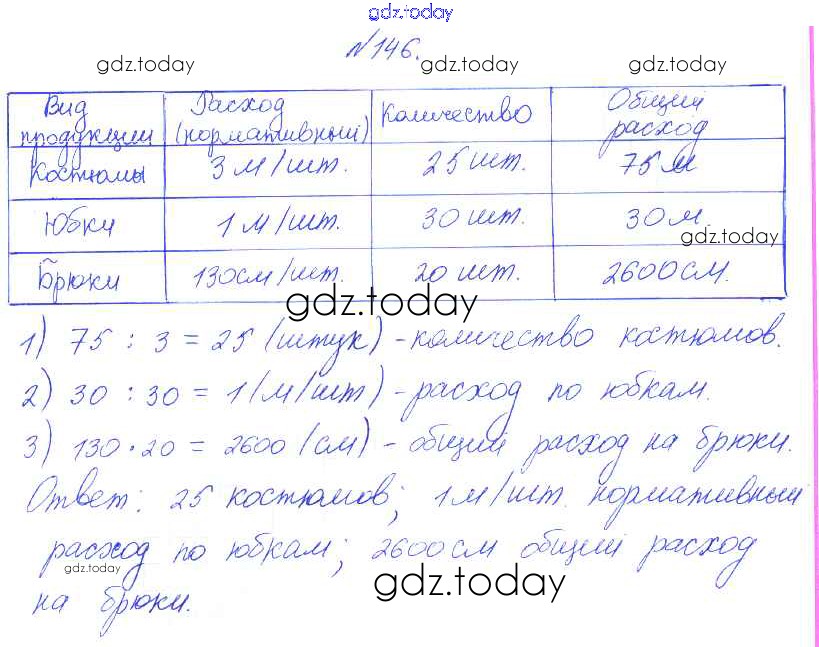 gdz.today
№146.
gdz.today gdz.today gdz.today
Вид продукции | Расход (нормативный) | Количество | Общий расход
Костюмы | 3 м/шт. | 25 шт. | 75 м
Юбки | 1 м/шт. | 30 шт. | 30 м.
gdz.today
Брюки | 130см/шт. | 20 шт. | 2600 см.
gdz.today
1) 75 : 3 = 25 (штук) - количество костюмов.
2) 30 : 30 = 1 (м/шт) - расход по юбкам.
3) 130 · 20 = 2600 (см) - общий расход на брюки.
Ответ: 25 костюмов; 1 м/шт. нормативный
расход по юбкам; 2600 см общий расход
gdz.today gdz.today
на брюки.